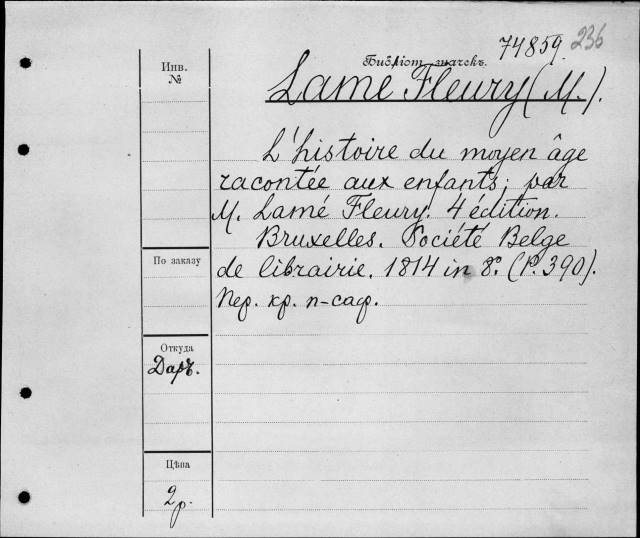 74859. 236
Инв.
№
Библіот. значекъ.
Lamé Fleury (M.).
L'histoire du moyen âge
racontée aux enfants; par
M. Lamé Fleury. 4 édition.
Bruxelles. Société Belge
По заказу
de librairie. 1814 in 8º. (P. 390).
Пер. кр. п-саф.
Откуда
Даръ.
Цѣна
2р.